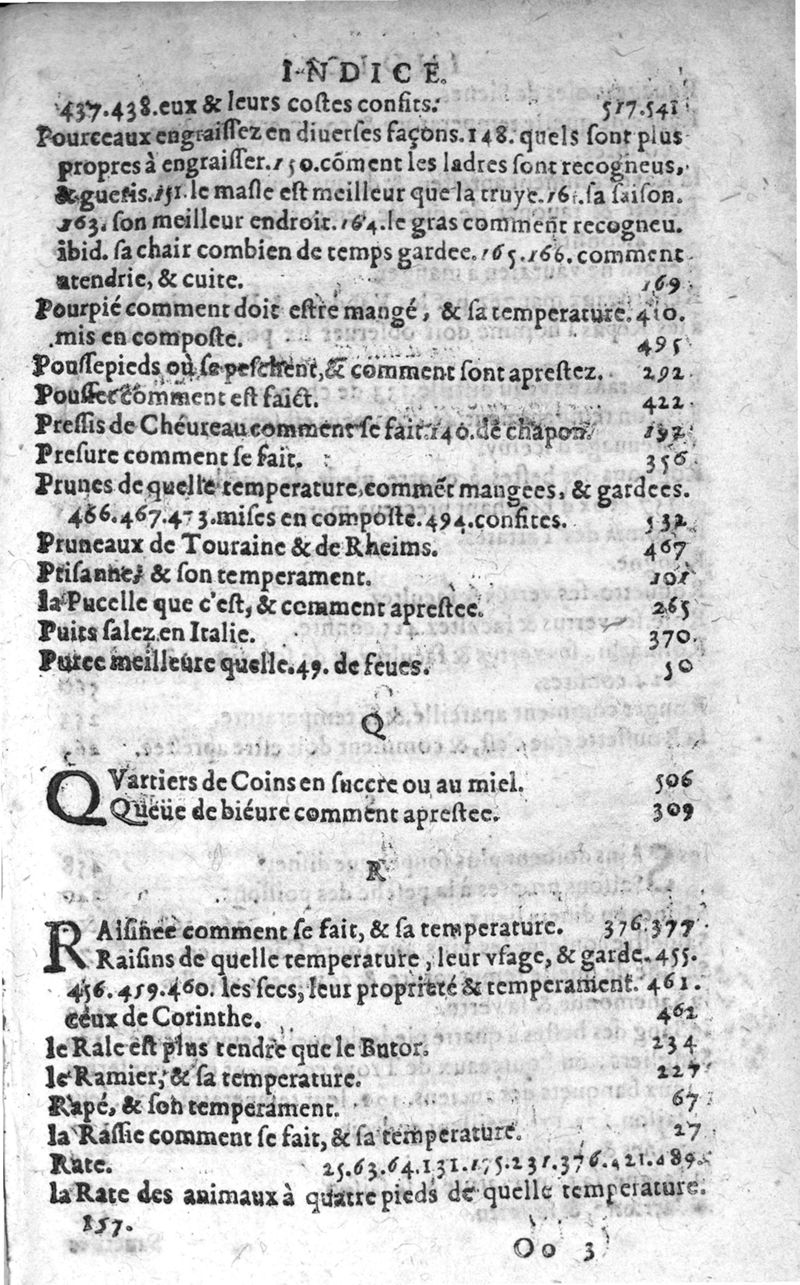 INDICE.
437.438. eux & leurs costes confits. 517.541
Pourceaux engraissez en diuerses façons. 148. quels sont plus
propres à engraisser. 150. cõment les ladres sont recogneus,
& gueris. 151. le masle est meilleur que la truye. 161. sa saison.
163. son meilleur endroit. 164. le gras comment recogneu.
ibid. sa chair combien de temps gardee. 165. 166. comment
atendrie, & cuite. 169
Pourpié comment doit estre mangé, & sa temperature. 410.
mis en composte. 495
Poussepieds où se peschent, & comment sont aprestez. 292
Pousset comment est faict. 422
Pressis de Chéureau comment se fait. 140. de chapon. 192
Presure comment se fait. 356
Prunes de quelle temperature, commẽt mangees, & gardees.
466.467.473. mises en composte. 494. confites. 532
Pruneaux de Touraine & de Rheims. 467
Ptisanne, & son temperament. 101
la Pucelle que c'est, & comment aprestee. 265
Puits salez en Italie. 370
Puree meilleure quelle. 49. de feues. 50
Q
QVartiers de Coins en succre ou au miel. 506
Queüe de biéure comment aprestee. 309
R
RAisinée comment se fait, & sa temperature. 376.377
Raisins de quelle temperature, leur vsage, & garde. 455.
456.459.460. les secs, leur proprieté & temperament. 461.
ceux de Corinthe. 462
le Rale est plus tendre que le Butor. 234
le Ramier, & sa temperature. 227
Rapé, & son temperament. 67
la Rassie comment se fait, & sa temperature. 27
Rate. 25.63.64.131.175.231.376.421.489.
la Rate des animaux à quatre pieds de quelle temperature.
157.
Oo 3